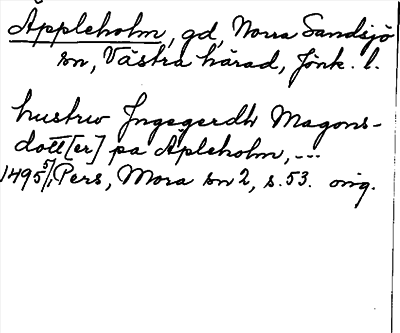 Äppleholm, gd, Norra Sandsjö
sn, Västra härad, Jönk. l.
hustrw Jngegerdh Magons-
dott[er] pa Äpleholm, ...
1495 5/1, Pers, Mora sn 2, s. 53. orig.